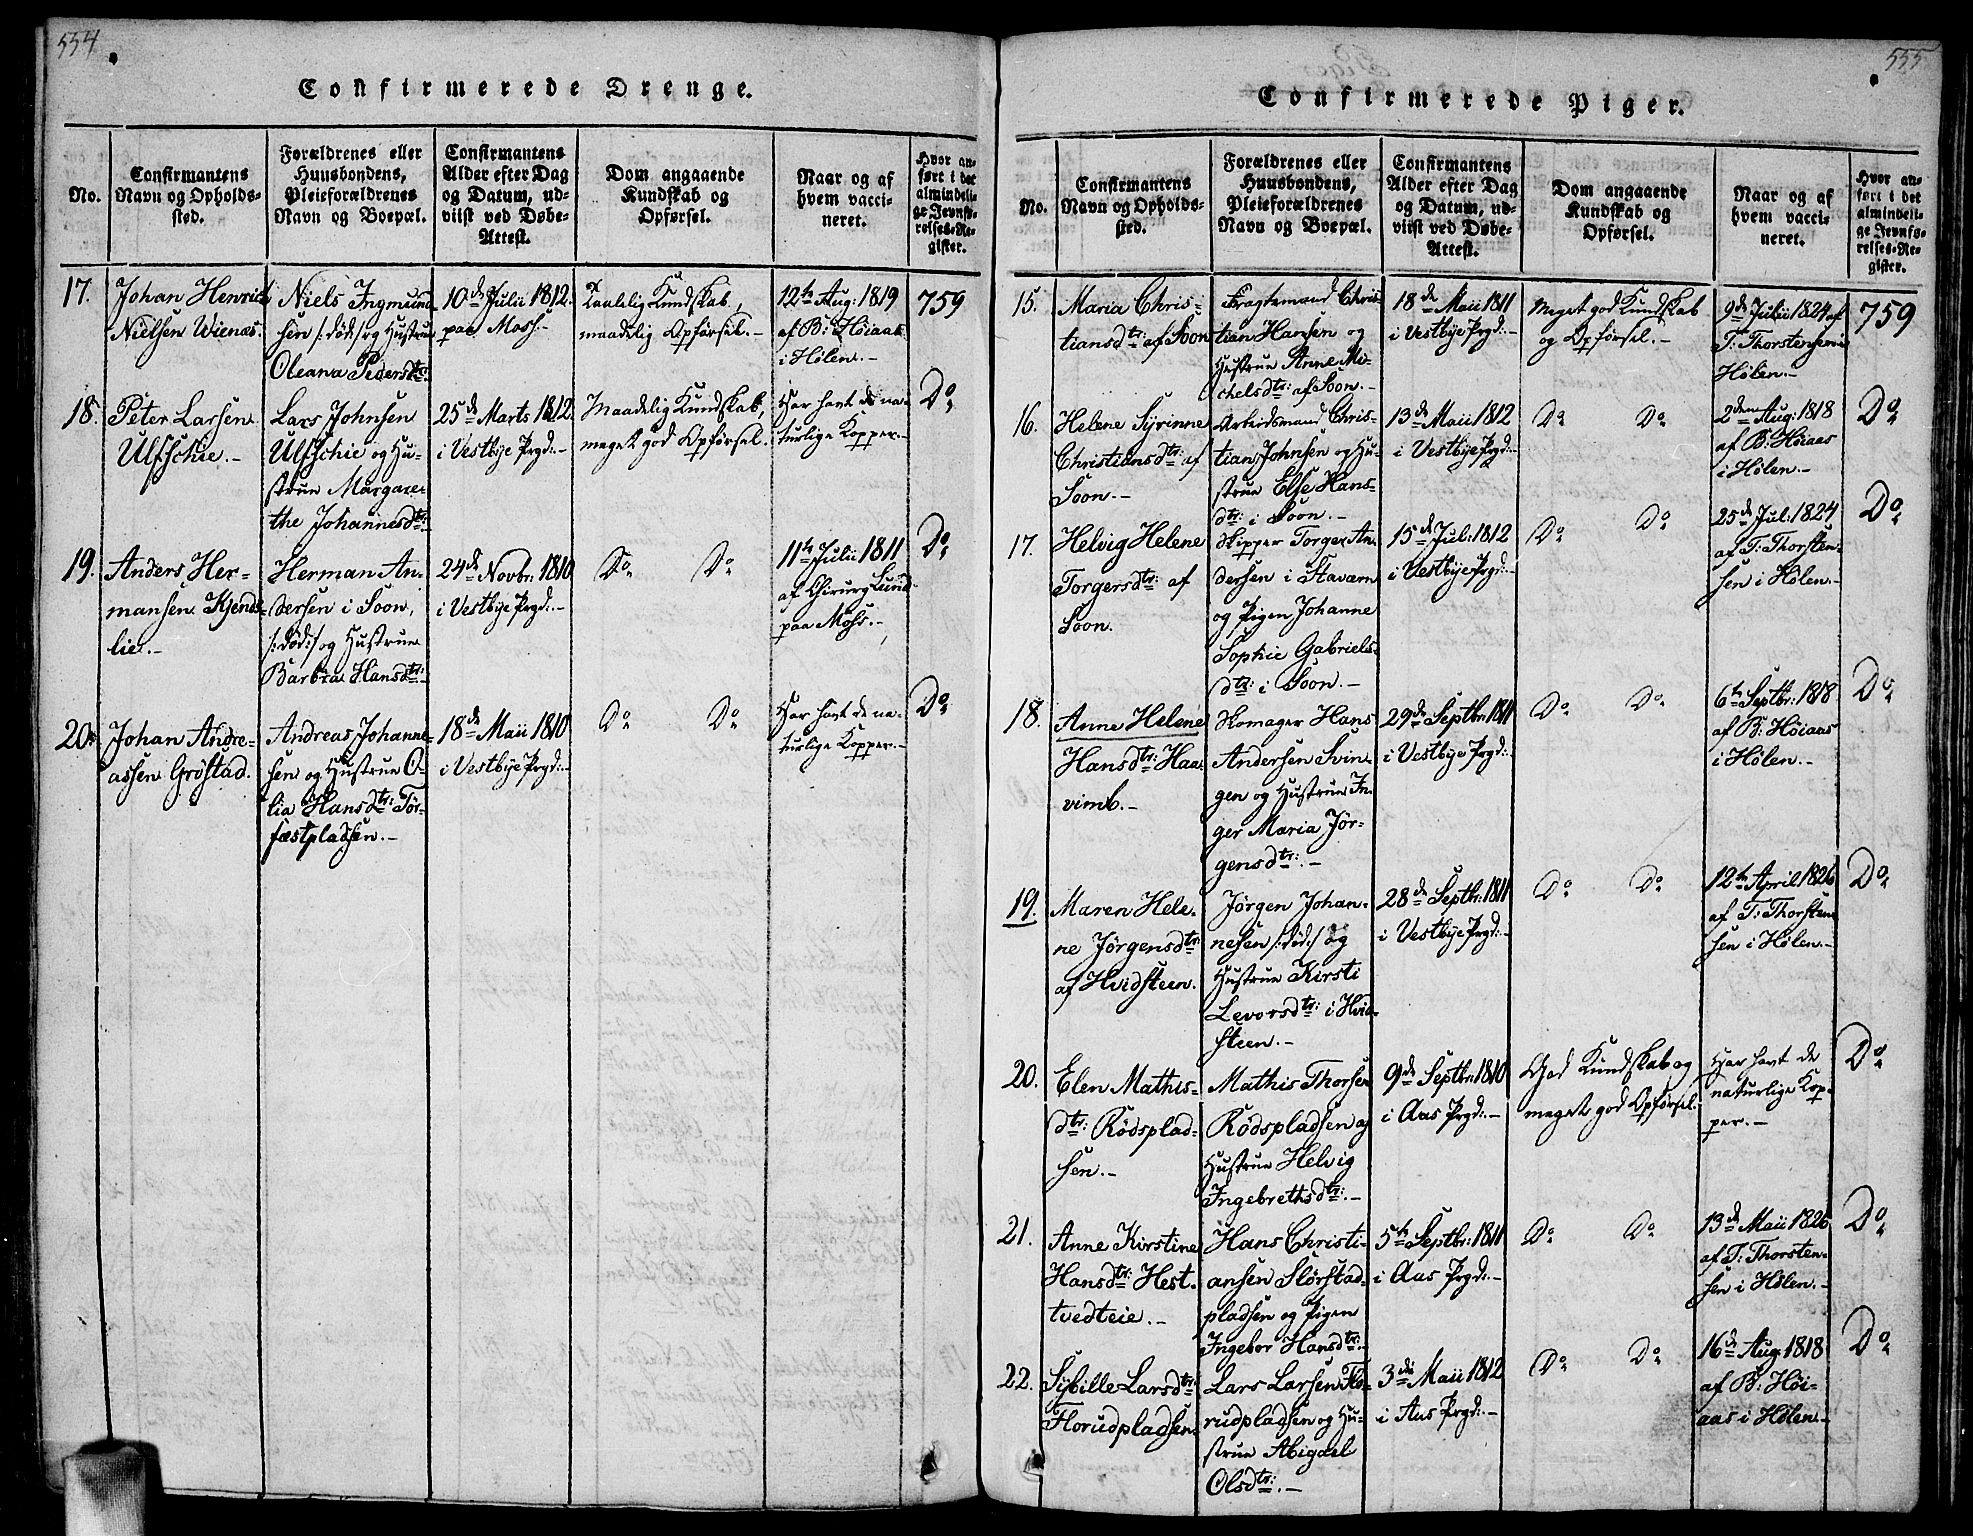 554
Confirmerede Drenge.
No.
Confirmantens
Navn og Opholds-
sted.
Forældrenes eller
Huusbondens,
Pleieforældrenes
Navn og Boepæl.
Confirmantens
Alder efter Dag
og Datum, ud-
viist ved Døbe-
Attest.
Dom angaaende
Kundskab og
Opførsel.
Naar og af
hvem vacci-
neret.
Hvor an-
ført i det
almindeli-
ge Jevnfø-
relses-Re-
gister.
17.
Johan Henrich
Nielsen Wienæs.
Niels Ingmund-
sen /:død:/ og Hustrue
Oleana Pedersdtr.
10de Julii 1812.
paa Moss.-
Taalelig Kundskab,
maadelig Opførsel.-
12te Aug: 1819
af B: Höiaas
i Hølen.-
759
18.
Peter Larsen
Ulfschie.-
Lars Johnsen
Ulfschie og Hu-
strue Margare-
the Johannesdtr:
25de Marts 1812.
i Vestbye Prgd:-
Maadelig Kundskab,
meget god Opførsel.
Har havt de na-
turlige Kopper.-
Do
19.
Anders Her-
mansen Kjends-
lie.-
Herman An-
dersen i Soon,
/:død:/ og Hustrue
Barbra Hansdtr:
24de Novbr: 1810
i Vestbye Prgd:-
Do Do
11te Julii 1811
af Chirurg Lund
paa Moss.-
Do
20.
Johan Andre-
assen Gröstad.
Andreas Johanne-
sen og Hustrue O-
lia Hansdtr: Tør-
fæstpladsen.-
18de Maii 1810
i Vestbye Prgd:-
Do Do
Har havt de na-
turlige Kopper.-
Do
555
Piger
Confirmerede Piger.
No.
Confirmantens
Navn og Opholds-
sted.
Forældrenes eller
Huusbondens,
Pleieforældrenes
Navn og Boepæl.
Confirmantens
Alder efter Dag
og Datum, ud-
viist ved Døbe-
Attest.
Dom angaaende
Kundskab og
Opførsel.
Naar og af
hvem vacci-
neret.
Hvor an-
ført i det
almindeli-
ge Jevnfø-
relses-Re-
gister.
15.
Maria Chris-
tiansdtr: af Soon
Fragtemand Chris-
tian Hansen og
Hustrue Anne Mi-
chelsdtr: af Soon.-
18de Maii 1811
i Vestbye Prgd:-
Meget god Kundskab
og Opførsel.-
9de Julii 1824 af
T: Thorstensen i
Hølen.-
759
16.
Helene Syrinne
Christiansdtr: af
Soon.-
Arbeidsmand Chris-
tian Johnsen og Hu-
strue Else Hans-
dtr: i Soon.-
13de Maii 1812
i Vestbye Prgd:-
Do Do
2den Aug: 1818
af B: Höiaas
i Hølen.-
Do
17.
Helvig Helene
Torgersdtr: af
Soon.
Skipper Torger An-
dersen i Stavern
og Pigen Johanne
Sophie Gabriels-
dtr: i Soon.-
15de Jul: 1812
i Vestbye Prgd:-
Do Do
25de Jul: 1824
af T: Thorsten-
sen i Hølen.-
Do
18.
Anne Helene
Hansdtr: Haa-
vimb.-
Skomager Hans
Andersen Svin-
gen og Hustrue In-
ger Maria Jör-
gensdtr:-
29de Septbr: 1811
i Vestbye Prgd:-
Do Do
6te Septbr: 1818
af B: Höiaas
i Hølen.-
Do
19.
Maren Hele-
ne Jörgensdtr:
af Hvidsteen.
Jörgen Johan-
nesen /:død:/ og
Hustrue Kirsti
Levorsdtr: i Hvid-
steen.-
28de Septbr: 1811
i Vestbye Prgd:-
Do Do
12te April 1826
af T: Thorsten-
sen i Hølen.-
Do
20.
Elen Mathis-
dtr: Rödsplad-
sen.-
Mathis Thorsen
Rödspladsen og
Hustrue Helvig
Ingebrethsdtr:-
9de Septbr: 1810
i Aas Prgd:-
God Kundskab og
meget god Opførsel.
Har havt de
naturlige Kop-
per.-
Do
21.
Anne Kirstine
Hansdtr: Hest-
tvedteie.-
Hans Christi-
ansen Slörstad-
pladsen og Pigen
Ingebor Hansdtr:
5te Septbr: 1811
i Aas Prgd:-
Do Do
13de Maii 1826
af T: Thorsten-
sen i Hølen.-
Do
22.
Sybille Larsdtr:
Florudpladsen.
Lars Larsen Flo-
rudpladsen og Hu-
strue Abigael
Olsdtr:-
3die Maii 1812
i Aas Prgd:-
Do Do
16de Aug: 1818
af B: Höi-
aas i Hølen.-
Do